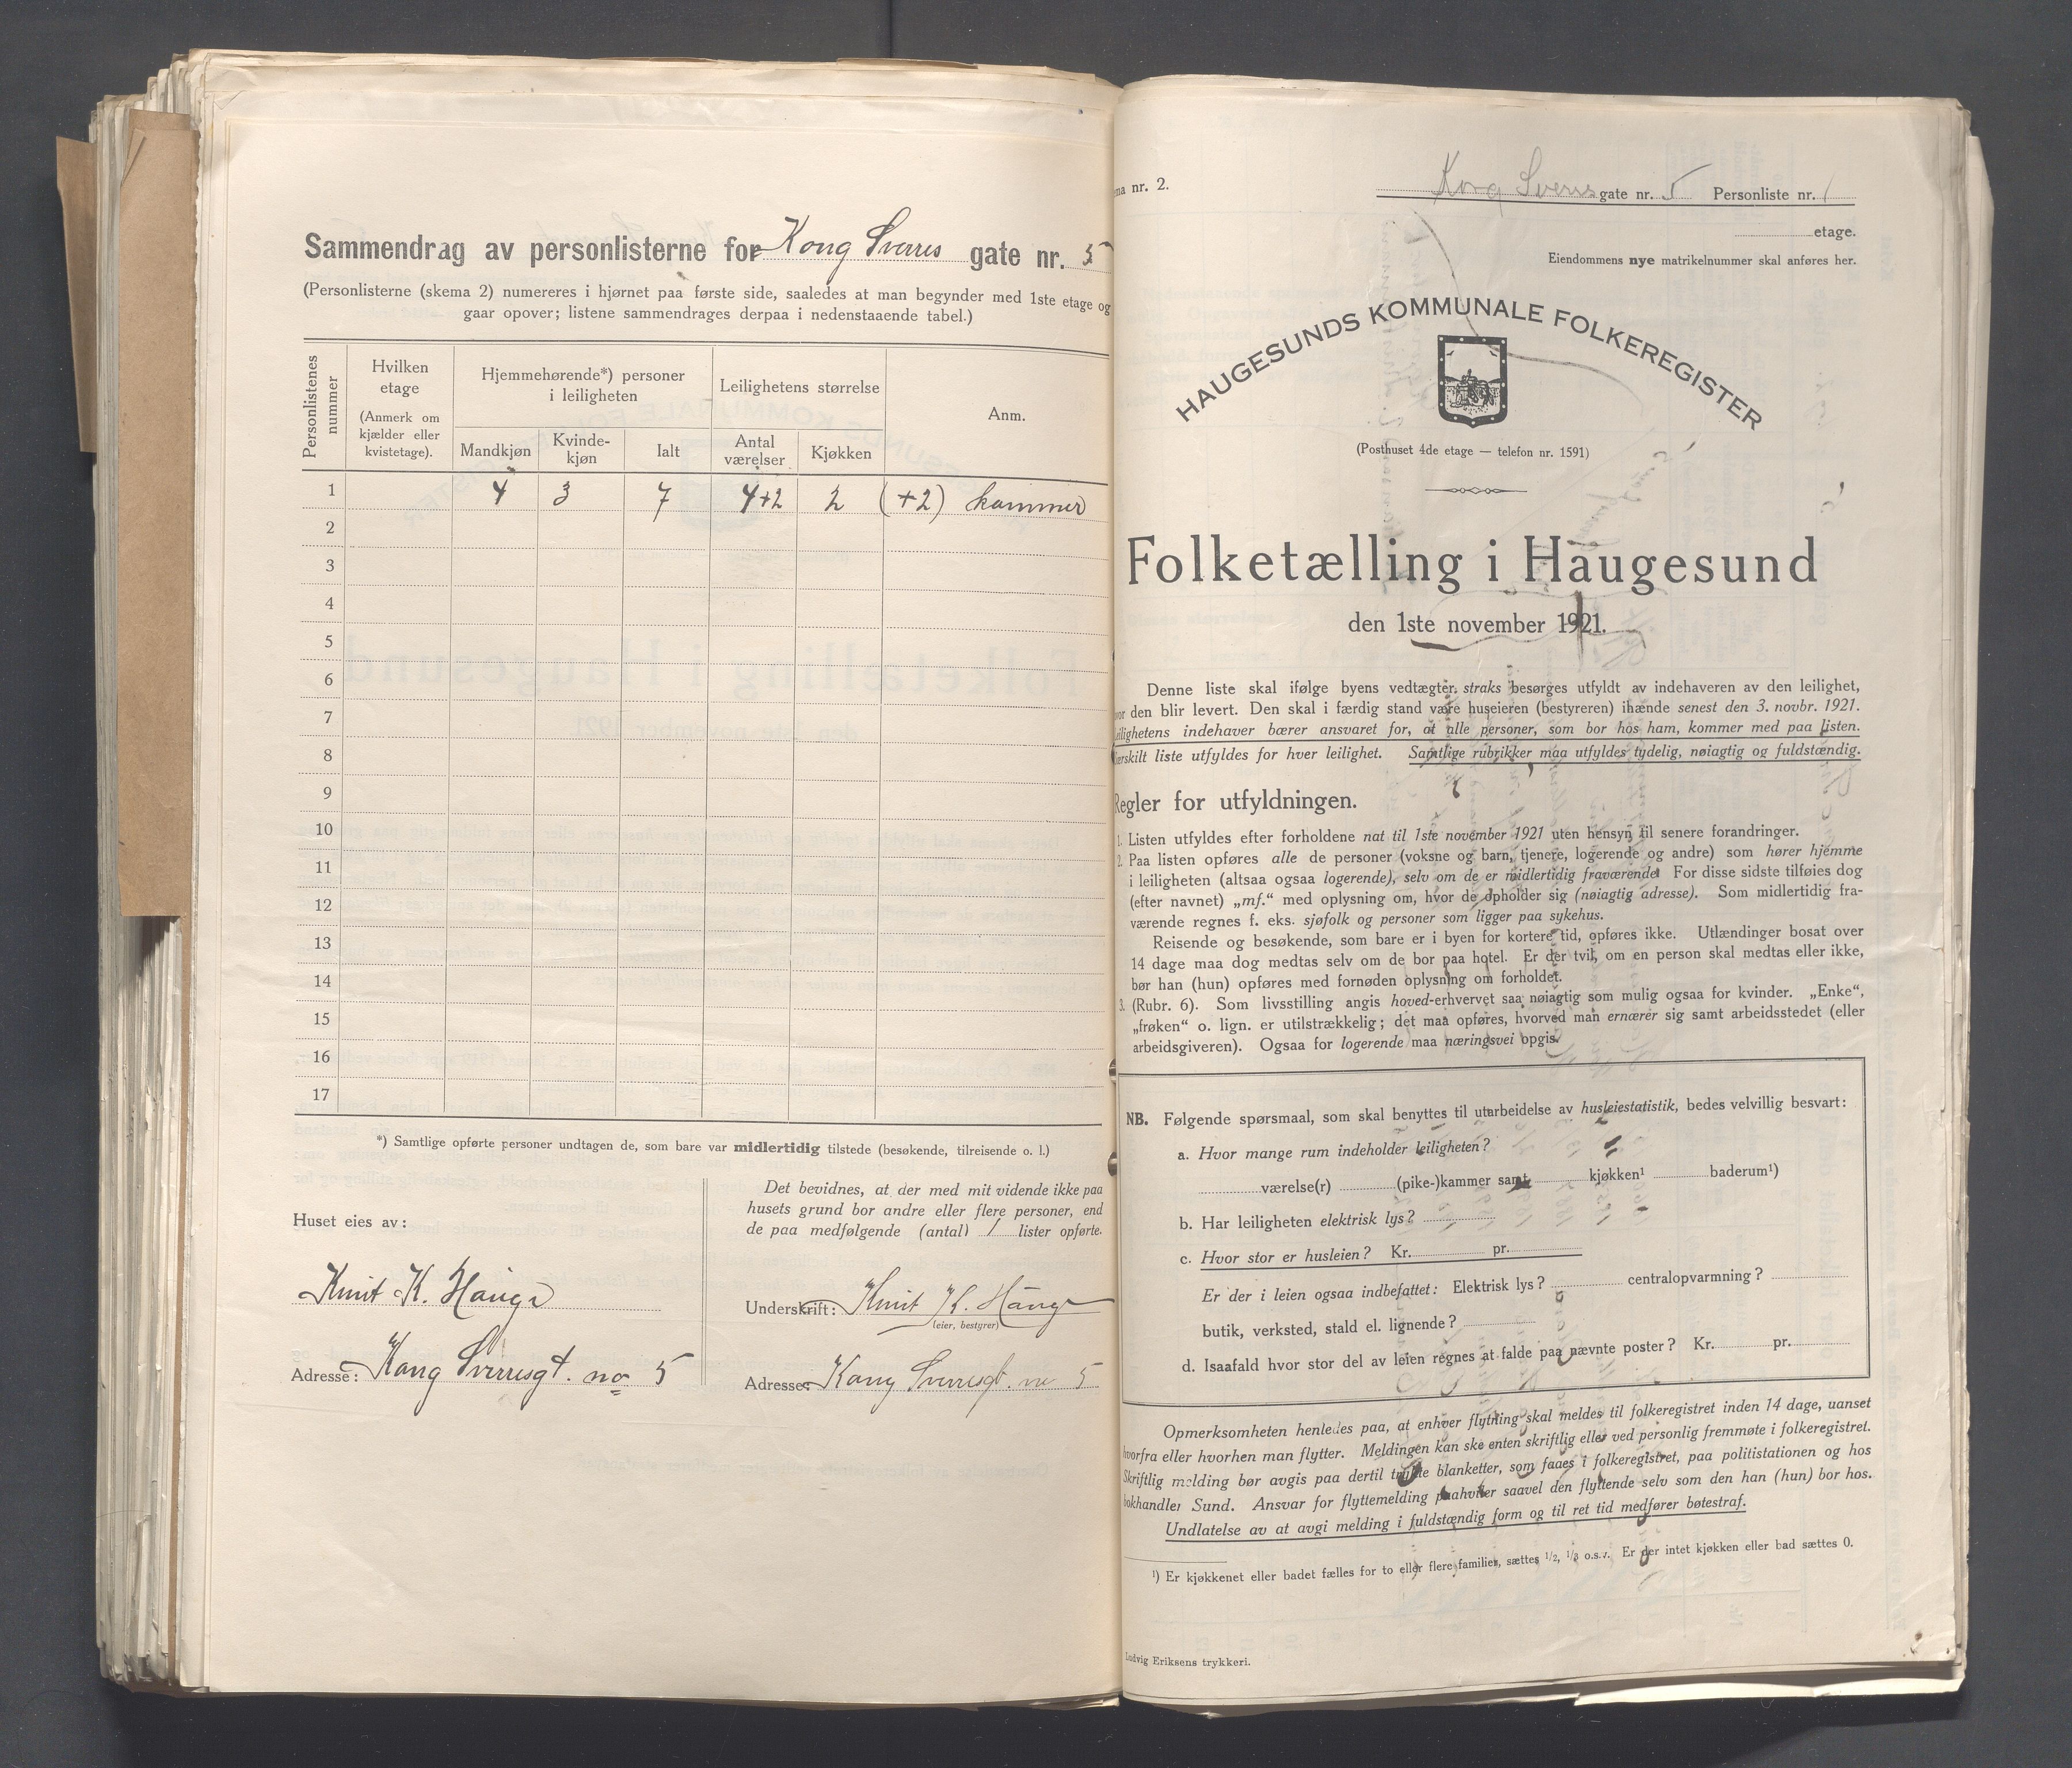 Sammendrag av personlisterne for Kong Sverres gate nr. 5
(Personlisterne (skema 2) numereres i hjørnet paa første side, saaledes at man begynder med 1ste etage og
gaar opover; listene sammendrages derpaa i nedenstaaende tabel.)
Personlistenes nummer
Hvilken etage (Anmerk om kjælder eller kvistetage).
Hjemmehørende*) personer i leiligheten
Leilighetens størrelse
Anm.
Mandkjøn Kvinde-kjøn Ialt Antal værelser Kjøkken
1 4 3 7 4+2 2 (+2) kammer
2
3
4
5
6
7
8
9
10
11
12
13
14
15
16
17
*) Samtlige opførte personer undtagen de, som bare var midlertidig tilstede (besøkende, tilreisende o. l.)
Huset eies av:
Knut K. Hauge
Adresse: Kong Sverresgt. no 5
Det bevidnes, at der med mit vidende ikke paa
husets grund bor andre eller flere personer, end
de paa medfølgende (antal) 1 lister opførte.
Underskrift: Knut K. Hauge
(eier, bestyrer)
Adresse: Kong Sverresgt. no 5
ma nr. 2.
Kong Sverres gate nr. 5 Personliste nr. 1
etage.
Eiendommens nye matrikelnummer skal anføres her.
HAUGESUNDS KOMMUNALE FOLKEREGISTER
(Posthuset 4de etage — telefon nr. 1591)
Folketælling i Haugesund
den 1ste november 1921.
Denne liste skal ifølge byens vedtægter straks besørges utfyldt av indehaveren av den leilighet,
vor den blir levert. Den skal i færdig stand være huseieren (bestyreren) ihænde senest den 3. novbr. 1921.
eilighetens indehaver bærer ansvaret for, at alle personer, som bor hos ham, kommer med paa listen.
ærskilt liste utfyldes for hver leilighet. Samtlige rubrikker maa utfyldes tydelig, nøiagtig og fuldstændig.
Regler for utfyldningen.
1. Listen utfyldes efter forholdene nat til 1ste november 1921 uten hensyn til senere forandringer.
2. Paa listen opføres alle de personer (voksne og barn, tjenere, logerende og andre) som hører hjemme
i leiligheten (altsaa ogsaa logerende), selv om de er midlertidig fraværende. For disse sidste tilføies dog
(efter navnet) „mf.“ med oplysning om, hvor de opholder sig (nøiagtig adresse). Som midlertidig fra-
værende regnes f. eks. sjøfolk og personer som ligger paa sykehus.
Reisende og besøkende, som bare er i byen for kortere tid, opføres ikke. Utlændinger bosat over
14 dage maa dog medtas selv om de bor paa hotel. Er der tvil, om en person skal medtas eller ikke,
bør han (hun) opføres med fornøden oplysning om forholdet.
3. (Rubr. 6). Som livsstilling angis hoved-erhvervet saa nøiagtig som mulig ogsaa for kvinder. „Enke“,
„frøken“ o. lign. er utilstrækkelig; det maa opføres, hvorved man ernærer sig samt arbeidsstedet (eller
arbeidsgiveren). Ogsaa for logerende maa næringsvei opgis.
NB. Følgende spørsmaal, som skal benyttes til utarbeidelse av husleiestatistik, bedes velvillig besvart:
a. Hvor mange rum indeholder leiligheten?
værelse(r) (pike-)kammer samt kjøkken¹ baderum¹)
b. Har leiligheten elektrisk lys?
c. Hvor stor er husleien? Kr. pr.
Er der i leien ogsaa indbefattet: Elektrisk lys? centralopvarmning?
butik, verksted, stald el. lignende?
d. Isaafald hvor stor del av leien regnes at falde paa nævnte poster? Kr. pr.
Opmerksomheten henledes paa, at enhver flytning skal meldes til folkeregistret inden 14 dage, uanset
hvorfra eller hvorhen man flytter. Meldingen kan ske enten skriftlig eller ved personlig fremmøte i folkeregistret.
Skriftlig melding bør avgis paa dertil trykte blanketter, som faaes i folkeregistret, paa politistationen og hos
bokhandler Sund. Ansvar for flyttemelding paahviler saavel den flyttende selv som den han (hun) bor hos.
Undlatelse av at avgi melding i fuldstændig form og til ret tid medfører bøtestraf.
¹) Er kjøkkenet eller badet fælles for to eller flere familier, sættes 1/2, 1/3 o.s.v. Er der intet kjøkken eller bad sættes 0.
Ludvig Eriksens trykkeri.